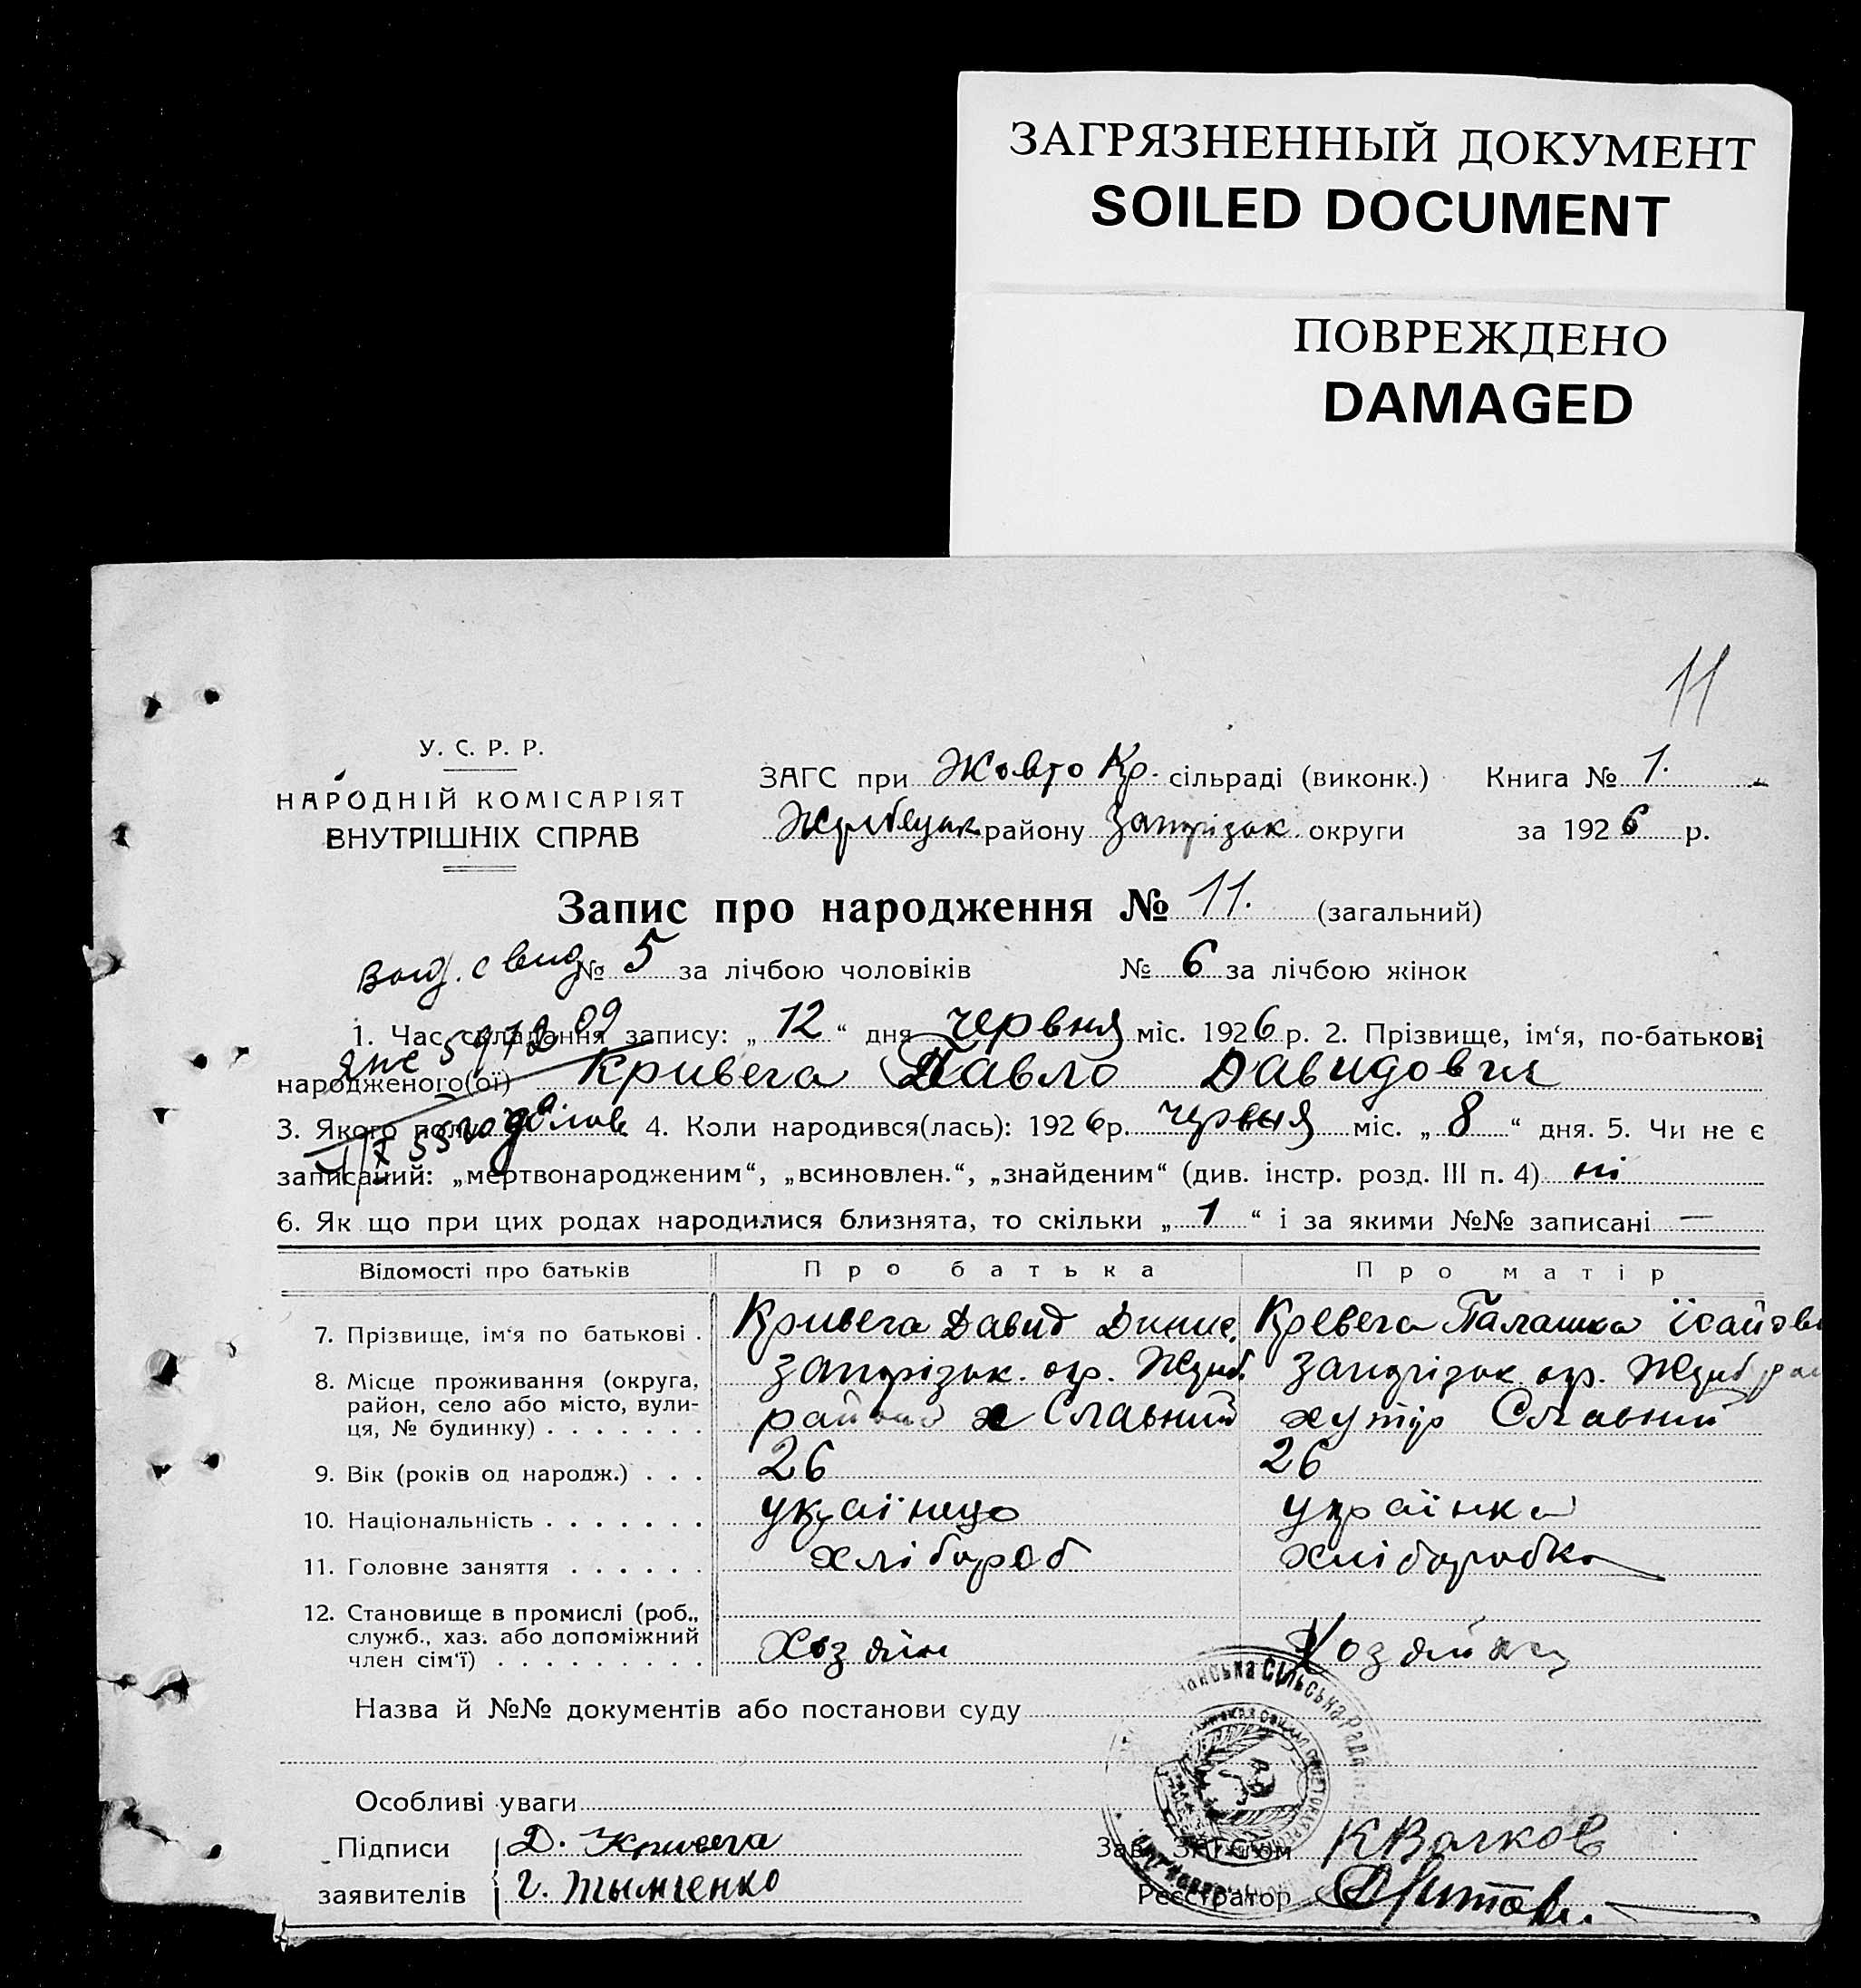 ЗАГРЯЗНЕННЫЙ ДОКУМЕНТ
SOILED DOCUMENT
ПОВРЕЖДЕНО
DAMAGED
11
У. С. Р. Р.
НАРОДНІЙ КОМІСАРІЯТ
ВНУТРІШНІХ СПРАВ
ЗАГС при Жовто Кр. сільраді (виконк.) Книга № 1.
району Запорізьк. округи за 1926 р.
Запис про народження № 11. (загальний)
№ 5 за лічбою чоловіків № 6 за лічбою жінок
1. Час складання запису: „12“ дня червня міс. 1926 р. 2. Прізвище, ім‘я, по-батькові
народженого(ої) Кривега Павло Давидович
3. Якого полу 4. Коли народився(лась): 1926р. червня міс. „8“ дня. 5. Чи не є
записаний: „мертвонародженим“, „всиновлен.“, „знайденим“ (див. інстр. розд. III п. 4) ні
6. Як що при цих родах народилися близнята, то скільки „1“ і за якими №№ записані —
Відомості про батьків Про батька Про матір
7. Прізвище, ім‘я по батькові . Кривега Давид Кревега Палашка
8. Місце проживання (округа, Запорізьк. окр. Запорізьк. окр.
район, село або місто, вули-
ця, № будинку) . . . . . . . х Славний хутір Славний
9. Вік (років од народж.) . . . 26 26
10. Національність . . . . . . . українець українка
11. Головне заняття . . . . . . хлібороб хліборобка
12. Становище в промислі (роб.,
служб., хаз. або допоміжний
член сім‘ї) . . . . . . . . . Хозяїн
Назва й №№ документів або постанови суду
Особливі уваги
Підписи Д. Кривега Зав. ЗАГСом
заявителів Г. Тымченко Реєстратор